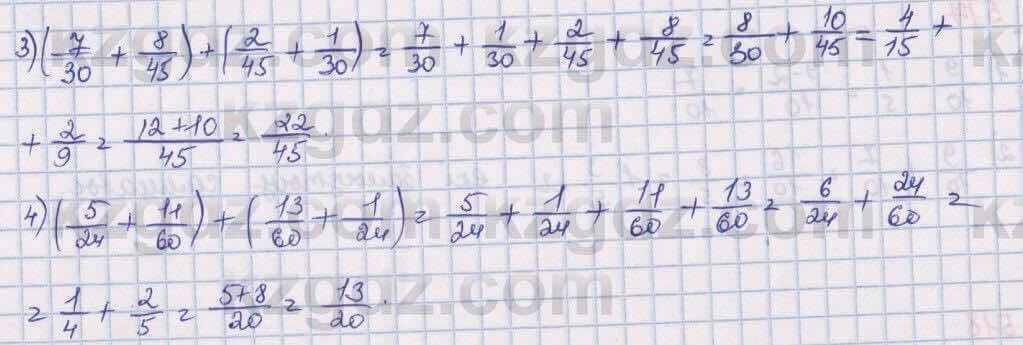 3) (7/30 + 8/45) + (2/45 + 1/30) = 7/30 + 1/30 + 2/45 + 8/45 = 8/30 + 10/45 = 4/15 +
+ 2/9 = 12+10/45 = 22/45.
4) (5/24 + 11/60) + (13/60 + 1/24) = 5/24 + 1/24 + 11/60 + 13/60 = 6/24 + 24/60 =
= 1/4 + 2/5 = 5+8/20 = 13/20.
kzgdz.com
kzgdz.com
kzgdz.com